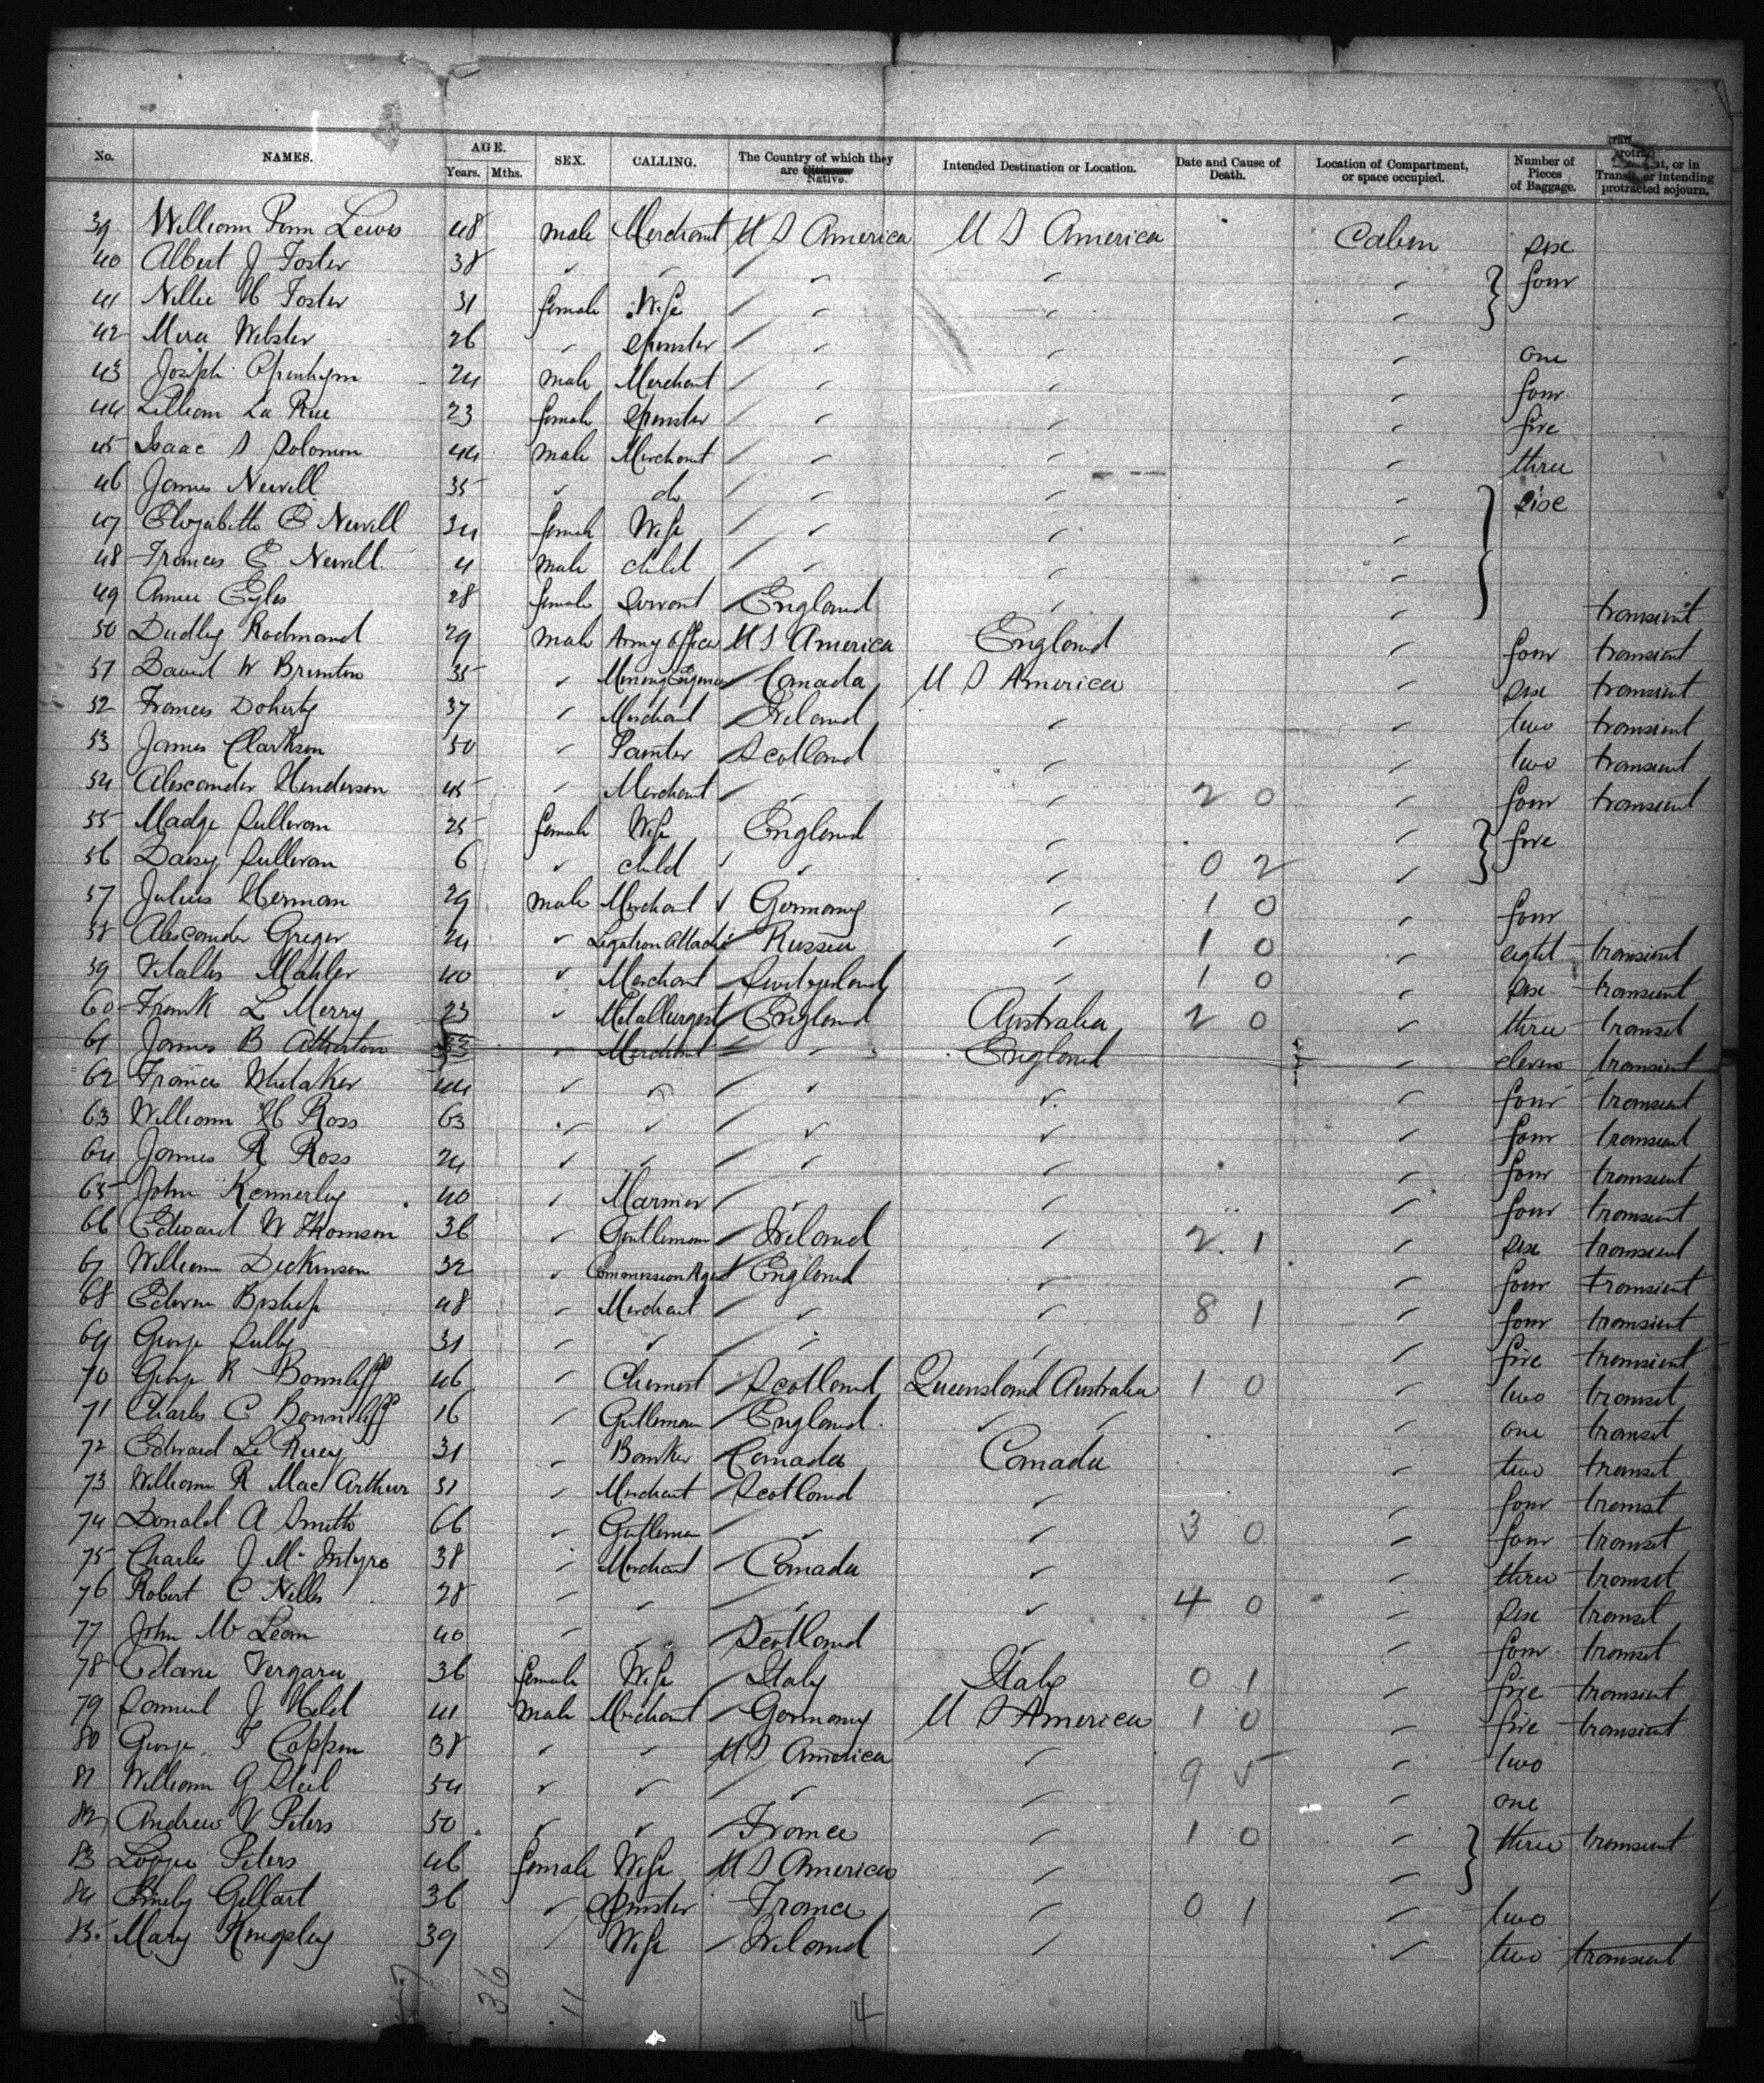 No. NAMES. AGE. Years. Mths. SEX. CALLING. The Country of which they are Citizens Native. Intended Destination or Location. Date and Cause of Death. Location of Compartment, or space occupied. Number of Pieces of Baggage. Transit, or intending protracted sojourn.
39 William Penn Lewis 48 male Merchant U S America U S America Cabin six
40 Albert J Foster 38 four
41 Nellie H Foster 31 female Wife
42 Mira Webster 26 spinster one
43 Joseph Openhym 24 male Merchant four
44 Lilliam La Rue 23 female spinster five
45 Isaac S Solomon 44 male Merchant three
46 James Newell 35 do six
47 Elizabeth E Newell 34 female Wife
48 Frances E Newell 4 male child
49 Annie Eyles 28 female servant England transient
50 Dudley Rodmand 29 male Army officer U S America England four transient
51 David W Brunton 35 Mining Engineer Canada U S America six transient
52 Frances Doherty 37 Merchant Ireland two transient
53 James Clarkson 50 Painter Scotland two transient
54 Alexander Henderson 45 Merchant 2 0 four transient
55 Madge Sullivan 25 female Wife England five
56 Daisy Sullivan 6 child 0 2
57 Julius Herman 29 male Merchant Germany 1 0 four
58 Alexander Greger 24 Legation Attaché Russia 1 0 eight transient
59 Mahler 40 Merchant Switzerland 1 0 six transient
60 Frank L Merry 23 Metallurgist England Australia 2 0 three transet
61 James B Atherton Merchant England eleven transient
62 France Whitaker 44 four transient
63 William H Ross 63 four transient
64 James R Ross 24 four transient
65 John Kennerley 40 Mariner four transient
66 Edward W Thomson 36 Gentleman Ireland 2 1 six transient
67 William Dickinson 32 Commission Agent England four transient
68 Edwin Bishop 48 Merchant 8 1 four transient
69 George Sulby 31 five transient
70 George R Bonnliff 46 Chemist Scotland Queensland Australia 1 0 two transet
71 Charles C Bonnliff 16 Gentleman England one transet
72 Edward Le Ruey 31 Banker Canada Canada two transet
73 William R Mac Arthur 31 Merchant Scotland four transet
74 Donald A Smith 66 Gentleman 3 0 four transet
75 Charles J Mc Intyre 38 Merchant Canada three transet
76 Robert C Nelles 28 4 0 six transet
77 John Mc Lean 40 Scotland four transet
78 Vergara 36 female Wife Italy Italy 0 1 five transient
79 Samuel J Held 41 male Merchant Germany U S America 1 0 five transient
80 George F Coppen 38 U S America two
81 William G Steel 54 9 5 one
82 Andrew V Peters 50 France 1 0 three transient
83 Lizzie Peters 46 female Wife U S America
84 Emily Gillart 36 spinster France 0 1 two
85 Mary Kingsley 39 Wife Ireland two transient
36 11 4